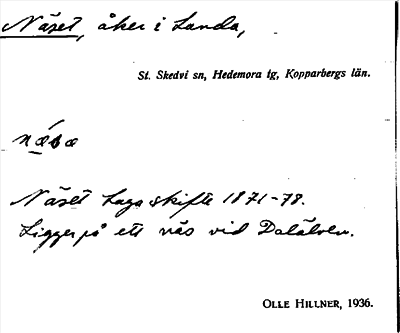 Näset, åker i Landa,
St. Skedvi sn, Hedemora tg, Kopparbergs län.
næ´sæ
Näset Laga skifte 1871-78.
Ligger på ett näs vid Dalälven.
OLLE HILLNER, 1936.